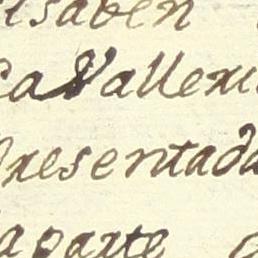 isaben
caValleri
presentada
a parte